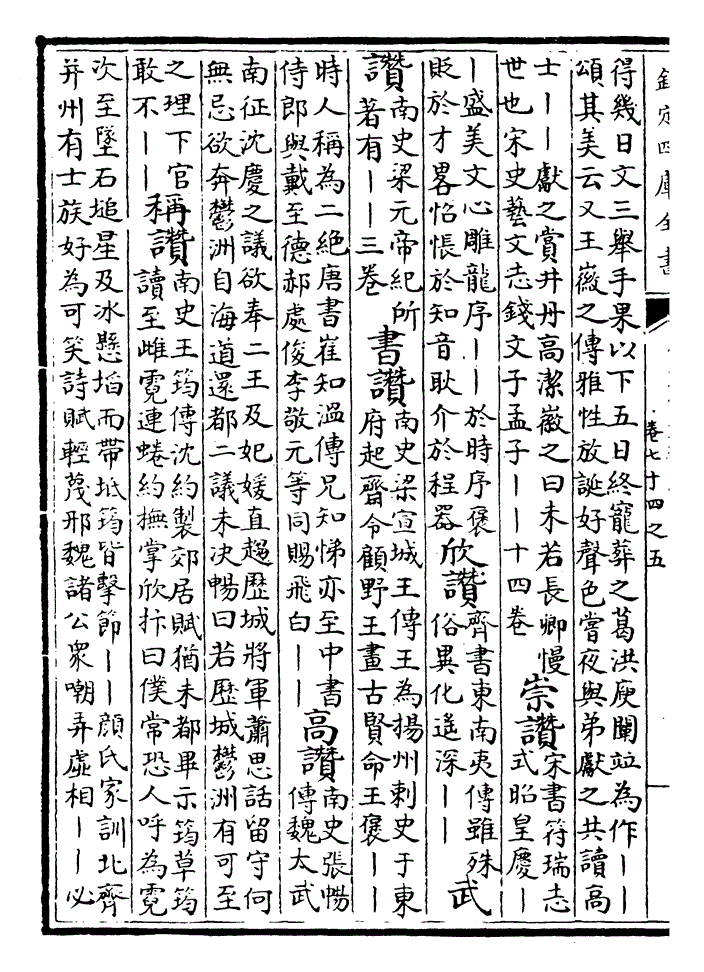 欽定四庫全書
卷七十四之五
得幾日文三舉手果以下五日終寵葬之葛洪庾闡竝為作——
頌其美云又王徽之傳雅性放誕好聲色嘗夜與弟獻之共讀高
士——獻之賞井丹高潔徽之曰未若長卿慢
世也宋史藝文志錢文子孟子——十四卷
崇讚
宋書符瑞志
式昭皇慶—
—盛美文心雕龍序——於時序褒
貶於才畧怊悵於知音耿介於程器
欣讚
齊書東南夷傳雖殊
俗異化遥深——
武
讚
南史梁元帝紀所
著有——三卷
書讚
南史梁宣城王傳王為揚州刺史于東
府起齋令顧野王畫古賢命王褒——
時人稱為二絕唐書崔知溫傳兄知悌亦至中書
侍郎與戴至德郝處俊李敬元等同賜飛白——
高讚
南史張暢
傳魏太武
南征沈慶之議欲奉二王及妃媛直趨歴城將軍蕭思話留守何
無忌欲奔鬱洲自海道還都二議未决暢曰若歴城鬱洲有可至
之理下官
敢不——
稱讚
南史王筠傳沈約製郊居賦猶未都畢示筠草筠
讀至雌霓連蜷約撫掌欣抃曰僕常恐人呼為霓
次至墜石塠星及冰懸埳而帶坻筠皆擊節——顏氏家訓北齊
并州有士族好為可笑詩賦輕蔑邢魏諸公衆嘲弄虛相——必